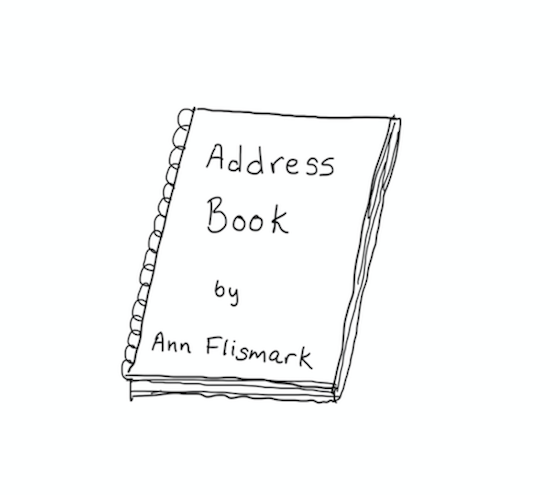 Address
Book
by
Ann Flismark